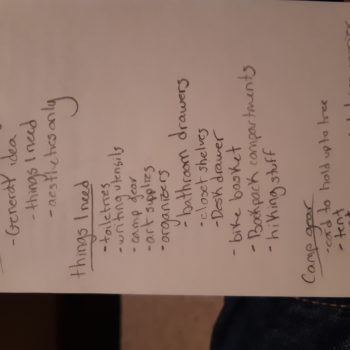 - General idea
- things I need
- aesthetics only
things I need
- toiletries
- writing utensils
- camp gear
- art supplies
- organizers
- bathroom drawers
- closet shelves
- Desk drawer
- bike basket
- Backpack compartments
- hiking stuff
Camp gear
- cord to hold up to tree
- tent